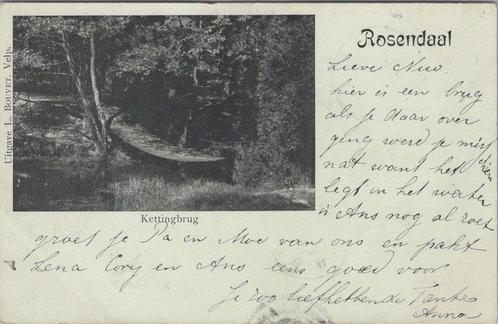 Rosendaal
Uitgave L. BOUVET. Velp.
Kettingbrug
Lieve Nuw.
hier is een brug
als je daar over
geng werd je misschien
nat want het
legt in het water
is Ans nog al zoet
groet je Pa en Moe van ons en pakt
Lena Cory en Ans eens goed voor
Je zoo liefhebbende Tante
Anna